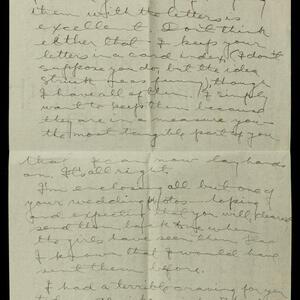 them with the letters is
excellent. I don't think
either that I keep your
letters in a card index (I don't
suppose you do but the idea
struck me as funny) though
I have all of them, I simply
want to keep them because
they are in a measure you
the most tangible part of you
that I can now lay hands
on. It's all right.
I'm enclosing all but one of
your wedding photos - hoping
and expecting that you will please
send them back to me when
the girls have seen them.
I known that I would have
sent them before.
I had a terrible craving for you